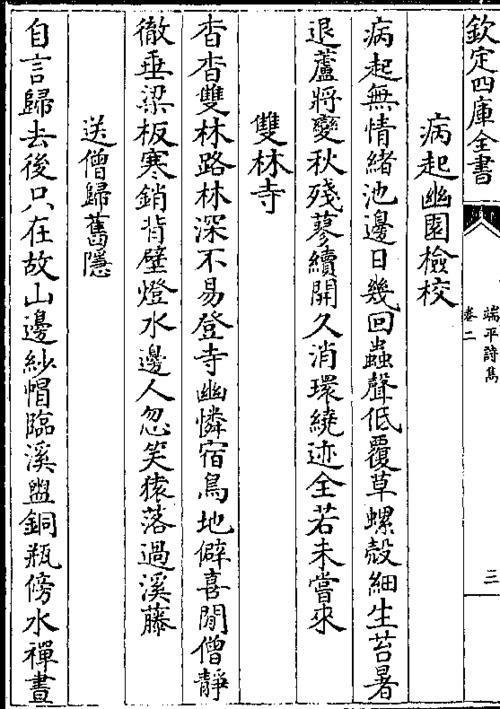 欽定四庫全書
端平詩雋
卷二
三
病起幽園檢校
病起無情緒池邊日幾回蟲聲低覆草螺殼細生苔暑
退蘆將變秋殘蓼續開久消環繞迹全若未嘗來
雙林寺
杳杳雙林路林深不易登寺幽憐宿鳥地僻喜閒僧靜
徹垂梁板寒銷背壁燈水邊人忽笑猿落過溪藤
送僧歸舊隱
自言歸去後只在故山邊紗帽臨溪盥銅瓶傍水禪晝